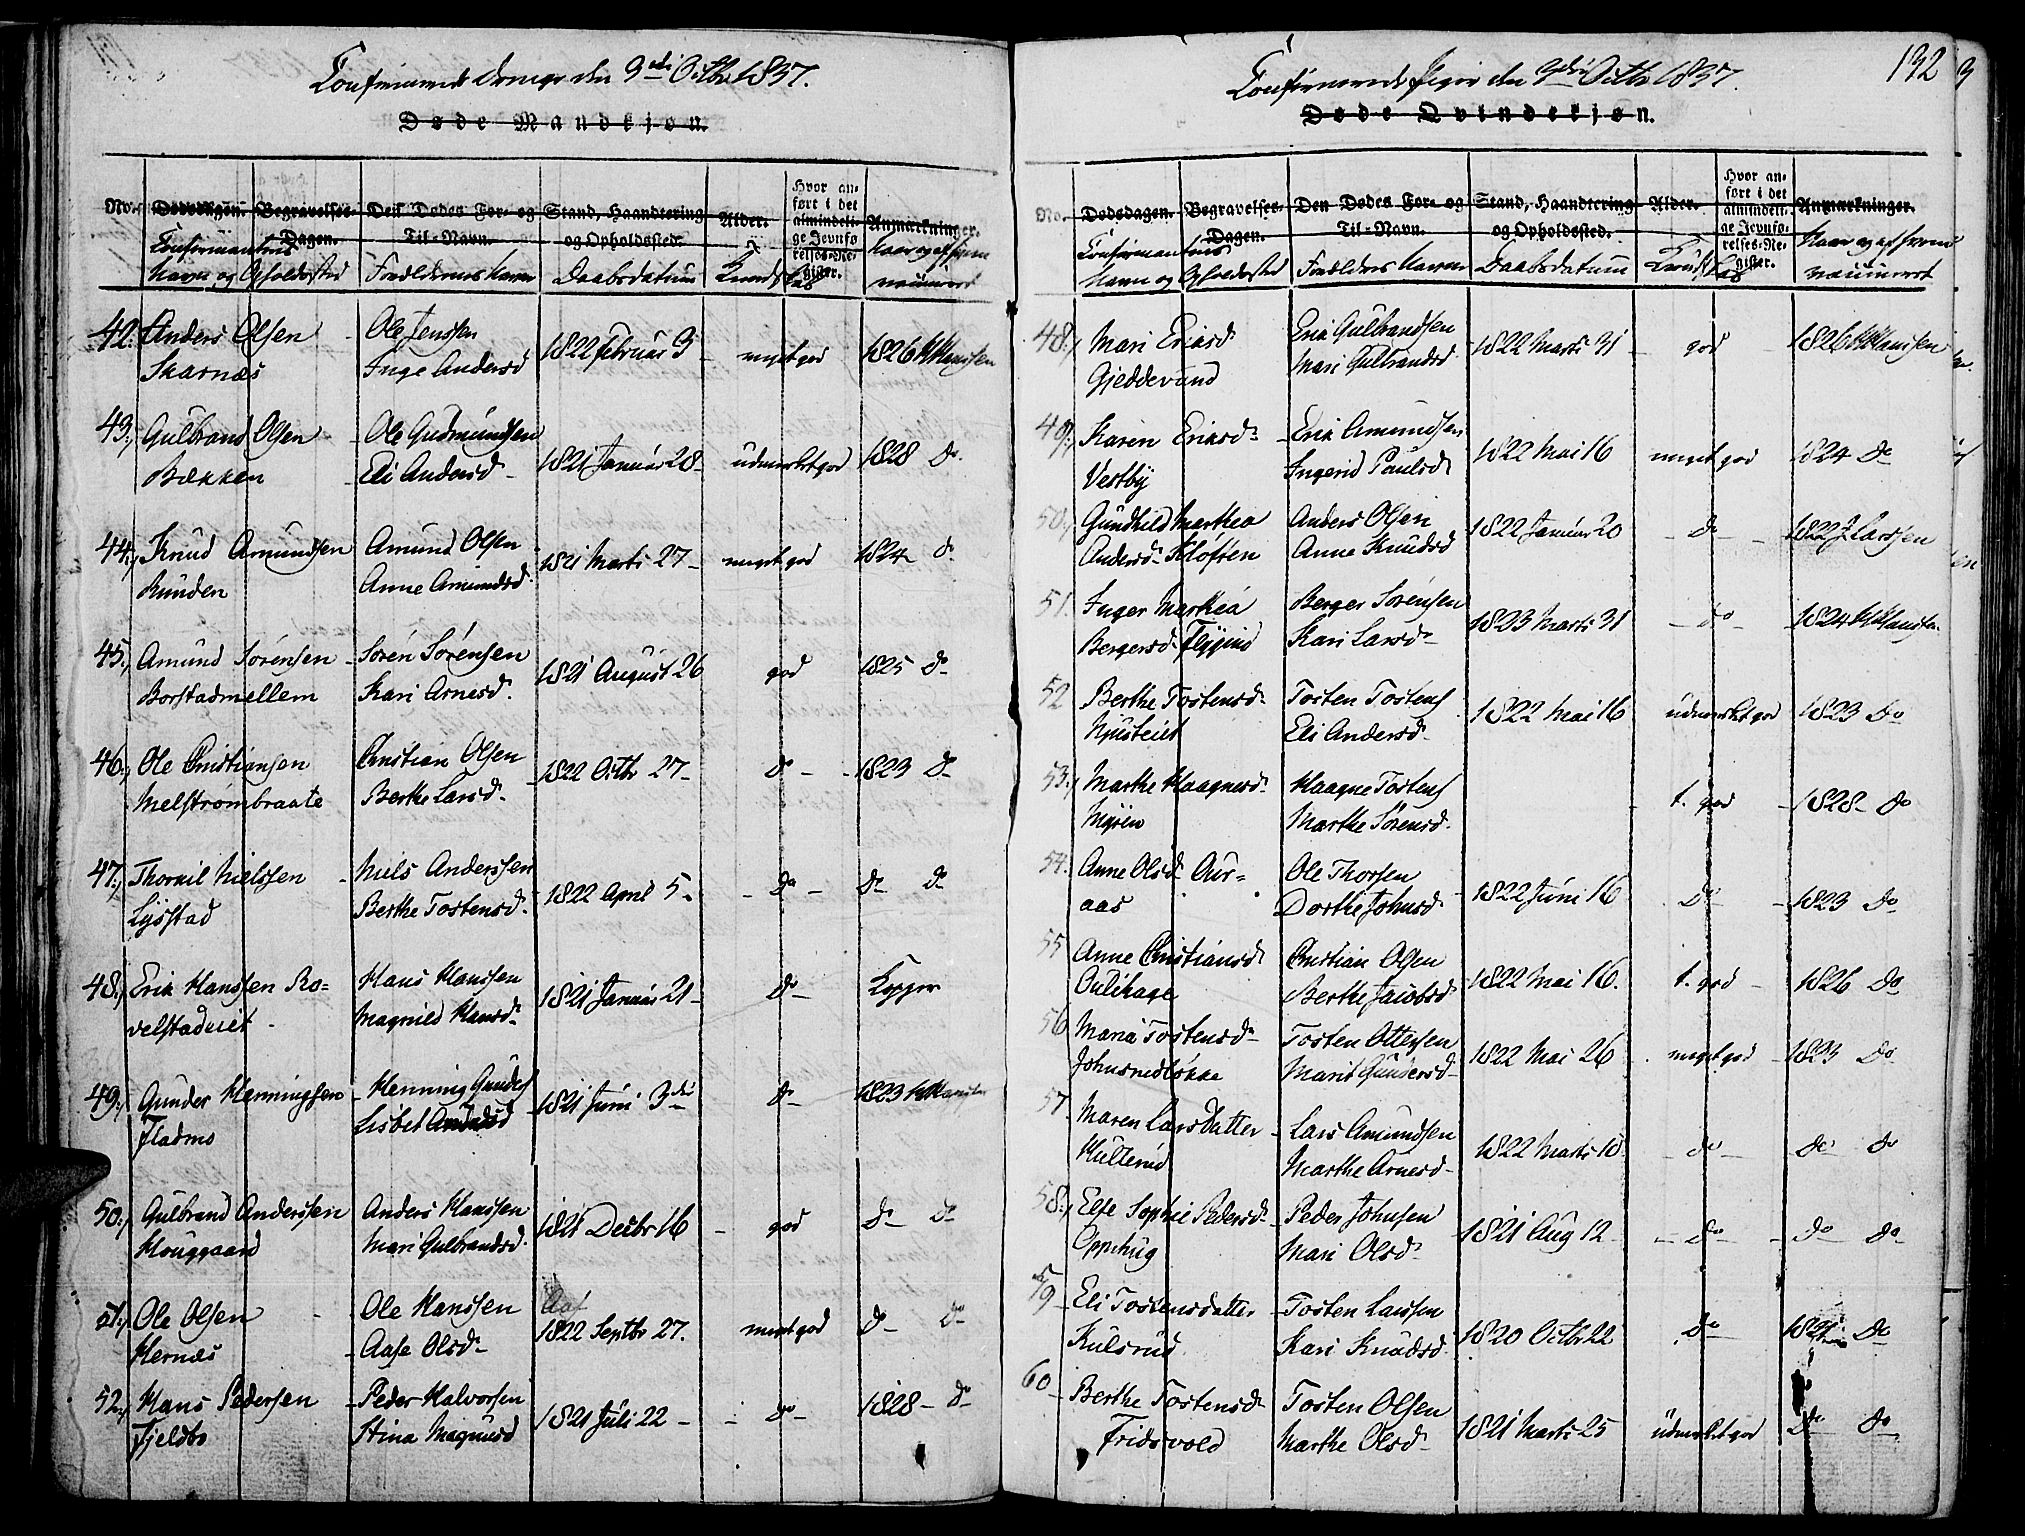 Confirmerede Drenge den 3die Octbr 1837.
Døde Mandkjøn.
No. Dødsdagen. Begravelses-Dagen. Den Dødes For- og Til-Navn. Stand, Haandtering og Opholdssted. Alder. Hvor anført i det almindelige Jevnførelses-Register. Anmærkninger.
Confirmantens Navn og Opholdssted Forældrenes Navne Daabsdatum Kundskab naar og af hvem vaccineret
42. Anders Olsen Ole Jenssen 1822 Februar 3 meget god 1826 H Hanssen
Skarnæs Inge Andersd
43. Gulbrand Olsen Ole Gudmundsen 1821 Januar 28 udmerket god 1828 Do
Bækken Eli Andersd
44. Knud Amundsen Amund Olsen 1821 Marts 27 meget god 1824 Do
Runden Anne Amundsd
45. Amund Sörensen Sören Sörensen 1821 August 26 god 1825 Do
Borstadmellem Kari Arnesd.
46. Ole Christiansen Christian Olsen 1822 Octbr 27 Do 1823 Do
Melstrømbraate Berthe Larsd.
47. Thorkil Nielssen Niels Anderssen 1822 April 5 Do Do Do
Lysstad Berthe Tostensd.
48. Erik Hanssen Ro= Hans Hanssen 1821 Januar 21 Do Kopper
velstadeiet Magnild Hansd.
49. Gunder Henningsen Henning Gunders 1821 Juni 3die Do 1823 H Hanssen
Fladmo Lisbet Amundsd
50. Gulbrand Anderssen Anders Hanssen 1821 Decbr 16 god Do Do
Houggaard Mari Gulbrandsd.
51. Ole Olsen Ole Hanssen 1822 Septbr 27. meget god Do Do
Hernæs Aase Olsd
52. Hans Pedersen Peder Halvorsen 1821 Juli 22 Do 1828 Do
Fjeldbo Stina Magnusd
132
Confirmerede Piger den 3die Octbr 1837.
Døde Qvindekjøn.
No. Dødsdagen. Begravelses-Dagen. Den Dødes For- og Til-Navn. Stand, Haandtering og Opholdssted. Alder. Hvor anført i det almindelige Jevnførelses-Register. Anmærkninger.
Confirmantens Navn og Opholdssted Forældres Navne Daabsdatum Kundskab Naar og af hvem vaccineret
48. Mari Eriksd Erik Gulbrandsen 1822 Marts 31 god 1826 H Hanssen
Gjeddevund Mari Gulbrandsd
49. Karen Eriksd Erik Amundsen 1822 Mai 16 meget god 1824 Do
Vestby Ingerid Paulsd
50. Gundhild Marthea Anders Olsen 1822 Januar 20 Do 1822 J Larssen
Andersd Klöften Anne Knudsd
51. Inger Marthea Berger Sörensen 1823 Marts 31 do 1824 H Hanssen
Bergersd Flygind Kari Larsd
52 Berthe Tostensd Tosten Tostens 1822 Mai 16 udmerket god 1823 Do
Njusteiet Eli Andersd
53. Marthe Haagnesd Haagne Tostens t. god 1828 Do
Myren Marthe Sörensd.
54. Anne Olsd Aur= Ole Thorsen 1822 Juni 16 Do 1823 Do
aas Dorthe Johnsd
55 Anne Christiansd Christian Olsen 1822 Mai 16. t. god 1826 Do
Oulihage Berthe Jacobsd
56 Maria Tostensd Tosten Ottersen 1822 Mai 26 meget god 1823 Do
Johnsrudlökke Marit Gundersd
57. Maren Lars Datter Lars Amundsen 1822 Marts 10 do do do
Hulterud Marthe Arnesd
58. Else Sophie Pedersd Peder Johnsen 1821 Aug 12 do do do
Opphug Mari Olsd
59 Eli Tostensdatter Tosten Larssen 1820 Octbr 22 do Do
Kulsrud Kari Knudsd
60 Berthe Tostensd Tosten Olsen 1821 Marts 25 udmerket god Do Do
Fridsvold Marthe Olsd